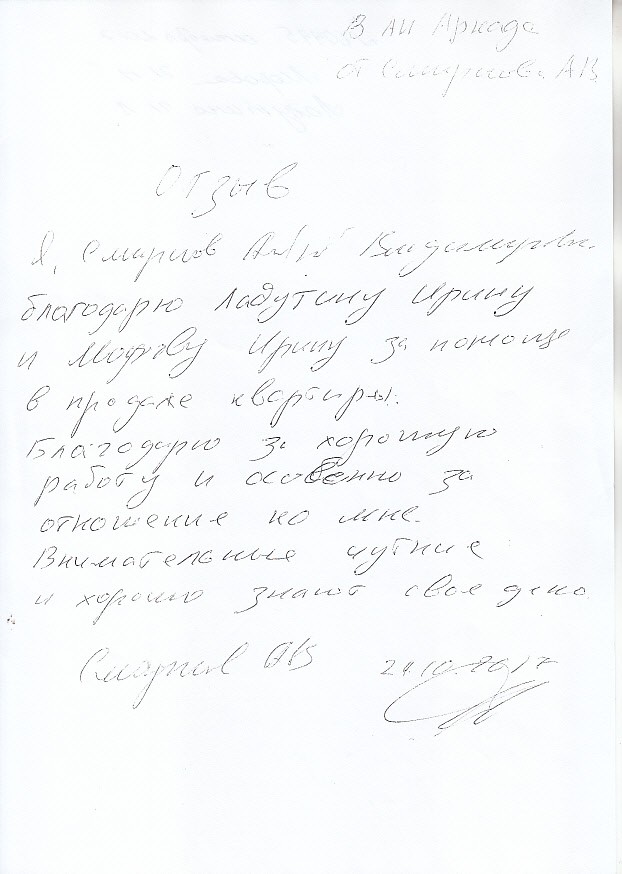 В АН Аркада
от Смирнова АВ
Отзыв
Я, Смирнов Владимирович
благодарю Ладутину Ирину
и Ирину за помощь
в продаже квартиры.
Благодарю за хорошую
работу и особенно за
отношение ко мне.
Внимательные чуткие
и хорошо знают свое дело
Смирнов АВ 24.10.2017